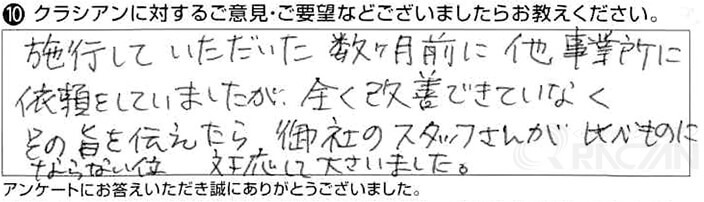 ⑩ クラシアンに対するご意見・ご要望などございましたらお教えください。
施行していただいた数ヶ月前に他事業所に
依頼をしていましたが、全く改善できていなく
その旨を伝えたら、御社のスタッフさんが比べものに
ならない位 対応して下さいました。
アンケートにお答えいただき誠にありがとうございました。